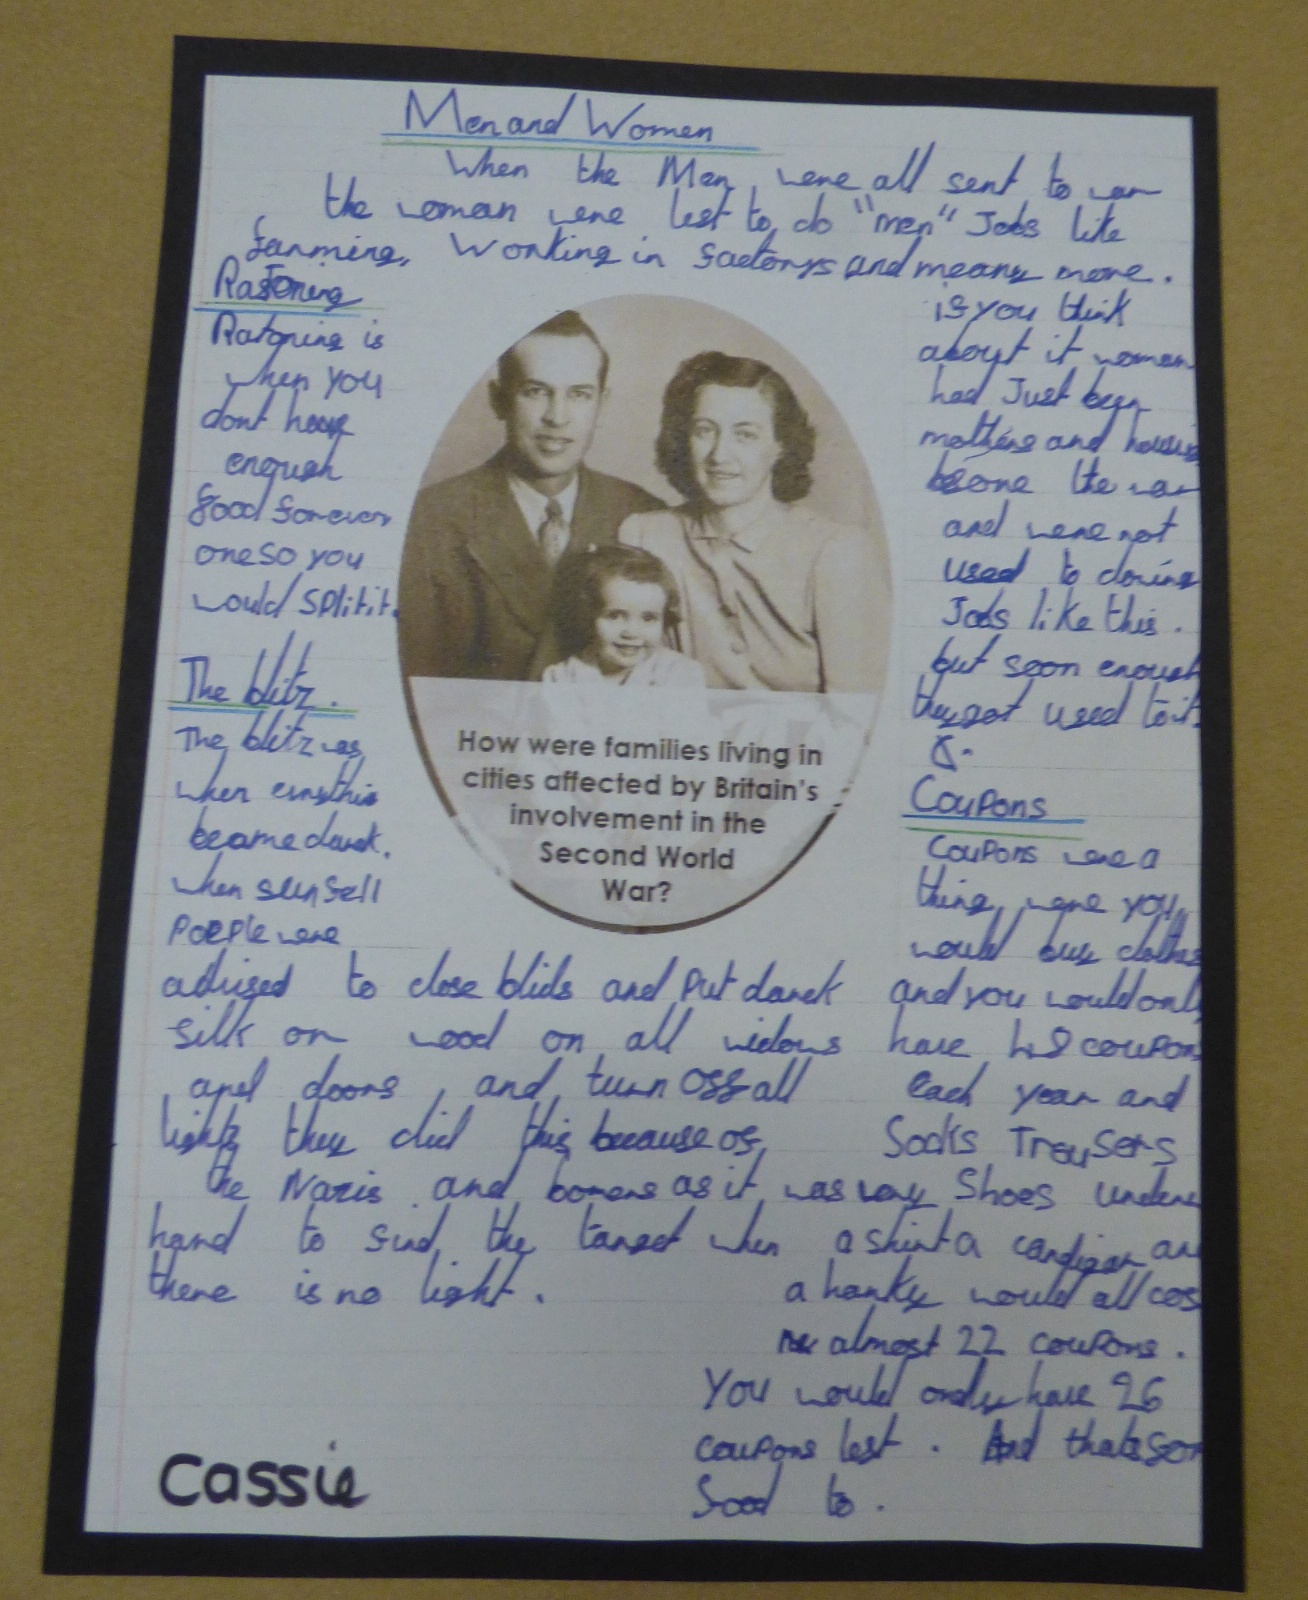 Men and Women
When the Men were all sent to war
the woman were left to do "men" Jobs like
farming, Working in factorys and meany more.
Rationing
Rationing is
when you
dont have
enough
food forever
one so you
would split it.
The blitz.
The blitz was
when
became dark.
when sun fell
people were
advised to close blids and put darck
silk or wood on all widows
and doors, and turn off all
lights they did this because of
the Nazis and bomers as it was very
hard to find the target when
there is no light.
if you think
about it women
had Just been
mothers and
before the war
and were not
used to doing
Jobs like this.
but soon enough
they got used to it.
Coupons
Coupons were a
thing were you
would buy clothes
and you would only
have 48 coupons
each year and
Socks Trousers
Shoes
a shirt a cardigan an
a hanky would all cos
almost 22 coupons.
You would only have 26
coupons left. And thats for
food to.
How were families living in
cities affected by Britain's
involvement in the
Second World
War?
Cassie